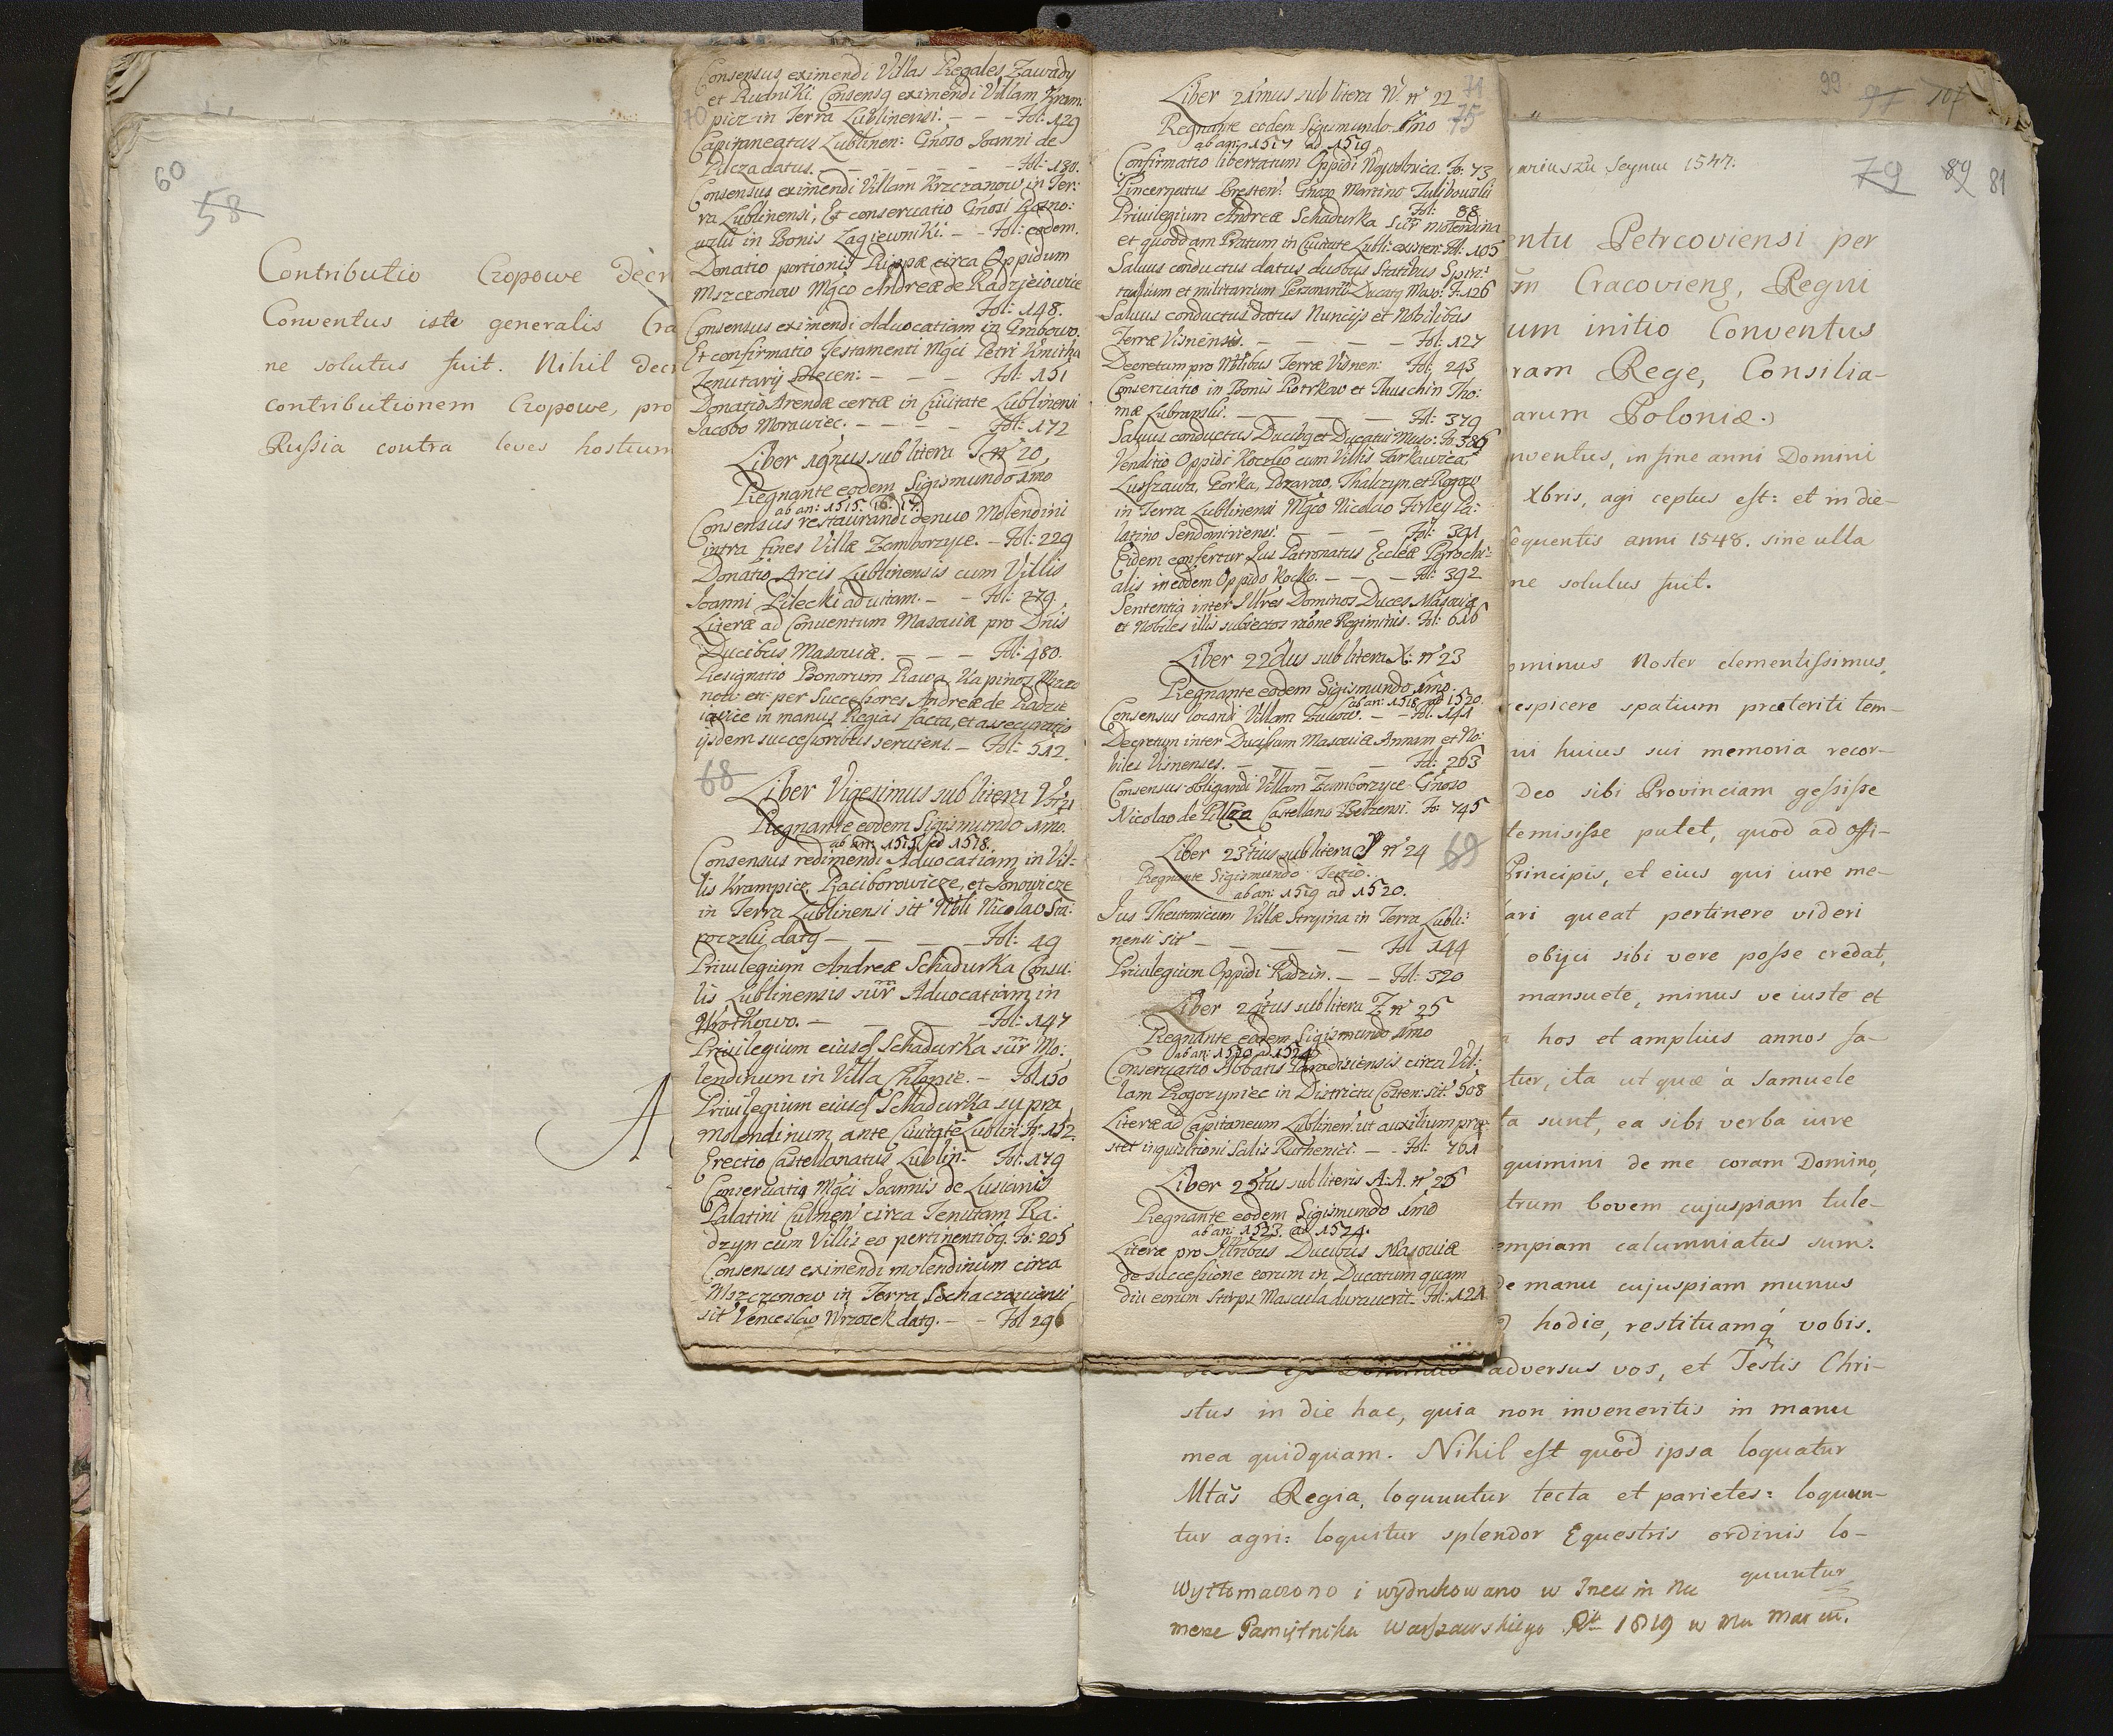 60
58
Contributio Czopowe decr
Conventus iste generalis Cra
ne solutus fuit. Nihil decr
contributionem Czopowe, pro
Russia contra leves hostium
A
Consensus eximendi Villas Regales Zawady
et Rudniki. Consensq eximendi Villam Kram:
70
picz in Terra Lublinensi. – – – Fol: 129
Capitaneatus Lublinen: Gnoso Joanni de
Pilcza datus. – – – – – Fol: 130.
Consensus eximendi Villam Krzczanow in Ter:
ra Lublinensi, Et conservatio Gnosi
in Bonis Zagiewniki. – – Fol: eodem.
Donatio portionis Rippæ circa Oppidum
Mszczonow Mgco Andreæ de Radziejowice
Fol: 148.
Consensus eximendi Advocatiam in Grabowo.
Et confirmatio Testamenti Mgci Petri Kmitha
Tenutarij Solecen: – – – Fol: 151
Donatio Arendæ certæ in Civitate Lublinensi
Jacobo Morawiec. – – – – Fol: 172
Liber 19nus sub litera T nº 20,
Regnante eodem Sigismundo 1mo
ab an: 1515. 16. 17.
Consensus restaurandi denuo Molendini
intra fines Villæ Zemborzyce. – Fol: 229
Donatio Arcis Lublinensis cum Villis
Joanni Pilecki ad vitam. – – Fol: 279.
Literæ ad Conventum Masoviæ pro Dnis
Ducibus Masoviæ. – – – Fol: 480.
Resignatio Bonorum Rawa Kapinos
per Successores Andreæ de Radzie
iovice in manus Regias facta, et assecuratio
ijsdem successoribus serviens. – Fol: 512.
68
Liber Vigesimus sub litera V nº 21
Regnante eodem Sigismundo 1mo.
ab an: 1515 ad 1518.
Consensus redimendi Advocatiam in Vil:
lis Krampicz, Raciborowicze, et Jonowicze
in Terra Lublinensi sit' Nbli Nicolao Sta:
datq – – – – Fol: 49
Privilegium Andreæ Schadurka Consu:
lis Lublinensis sur Advocatiam in
Wrotkowo. – – – – Fol: 147
Privilegium eiusd Schadurka sur Mo:
lendinum in Villa – Fol 150
Privilegium eiusd Schadurka supra
molendinum ante Civitate Lublin: Fo: 152.
Erectio Castellanatus Lublin: Fol: 179
Conservatio Mgci Joannis de Lusianis
Palatini Culmen' circa Tenutam Ra:
dzyn cum Villis eo pertinentibq. Fo: 205
Consensus eximendi molendinum circa
Mszczonow in Terra Sochaczoviensi
sit' Venceslao Wrzosek datq. – – Fol 296
Liber 21mus sub litera W. nº 22
71
75
Regnante eodem Sigismundo 1mo
ab an: 1517 ad 1519
Confirmatio libertatum Oppidi Fo: 73
Pincernatus Bresten: Gnoso Martino
Fol: 88
Privilegium Andreæ Schadurka sur molendina
et quoddam Pratum in Civitate Lubli: existen: Fol: 105
Salvus conductus datus duobus Statibus Spiri:
tualium et militarium Personarum Ducatq Maso: F: 126
Salvus conductus datus Nuncijs et Nobilibus
Terræ Visnensis. – – – – Fol: 127
Decretum pro Nblibus Terræ Visnen: Fol: 243
Conservatio in Bonis Piotrkow et Tho:
mæ Lubranski. – – – – Fol: 379
Salvus conductus Ducibq et Ducatui Maso: Fo 386
Venditio Oppidi Koczko cum Villis Tarkawica
Lusszawa, Gorka, Pozarow, Thalczyn, et Rogow
in Terra Lublinensi Mgco Nicolao Firley Pa:
latino Sendomiriensi. – – – Fol: 391
Eidem confertur Jus Patronatus Eccleæ Parochi:
alis in eodem Oppido Kocko. – – – Fol: 392
Sententia inter Illres Dominos Duces Masoviæ
et Nobiles illis subiectos raone Regiminis. Fol: 616
Liber 22dus sub litera X: nº 23
Regnante eodem Sigismundo 1mo.
ab an: 1518 ad 1520.
Consensus locandi Villam – – Fol: 141
Decretum inter Ducissam Masoviæ Annam et No:
biles Visnenses. – – – – Fol: 263
Consensus obligandi Villam Zemborzyce Gnoso
Nicolao de Pilcza Castellano Belzensi. Fo: 745
Liber 23tius sub litera Y nº 24
69
Regnante Sigismundo Tertio.
ab an: 1519 ad 1520.
Jus Theutonicum Villæ Stryina in Terra Lubli:
nensi sit' – – – – Fol 144
Privilegium Oppidi Radzin. – – Fol: 320
Liber 24tus sub litera Z nº 25
Regnante eodem Sigismundo 1mo
ab an: 1520 ad 1524
Conservatio Abbatis Paradisiensis circa Vil:
lam Rogozyniec in Districtu Costen: sit' 508
Literæ ad Capitaneum Lublinen: ut auxilium præ:
stet inquisitioni Salis Ruthenici. – – Fol: 761
Liber 25tus sub literis A.A. nº 26
Regnante eodem Sigismundo 1mo
ab an: 1523. ad 1524.
Literæ pro Illribus Ducibus Masoviæ
de successione eorum in Ducatum quam
diu eorum Stirps Mascula duraverit. Fol: 121.
99 97 107
79 89 81
Seymu 1547.
entu Petrcoviensi per
m Cracovieng, Regni
um initio Conventus
ram Rege, Consilia-
arum Poloniæ.)
nventus, in fine anni Domini
Xbris, agi ceptus est: et in die
equentis anni 1548. sine ulla
ne solutus fuit.
ominus Noster clementissimus,
respicere spatium præteriti tem-
ui huius sui memoria recor-
Deo sibi Provinciam gessisse
temisisse putet, quod ad offi-
Principis, et eius qui iure me-
ari queat pertinere videri
obijci sibi vere posse credat,
mansuete, minus ve iuste et
hos et amplius annos fa-
tur, ita ut quæ à Samuele
ta sunt, ea sibi verba iure
quimini de me coram Domino,
trum bovem cujuspiam tule-
empiam calumniatus sum.
de manu cujuspiam munus
hodie, restituamq́ vobis.
adversus vos, et Testis Chri-
stus in die hac, quia non inveneritis in manu
mea quidquam. Nihil est quod ipsa loquatur
Mtas Regia, loquuntur tecta et parietes: loquun-
tur agri: loquitur splendor Equestris ordinis lo-
quuntur
wytłomaczono i wydrukowano w Nu
merze Pamiętnika Warszawskiego 1819 w